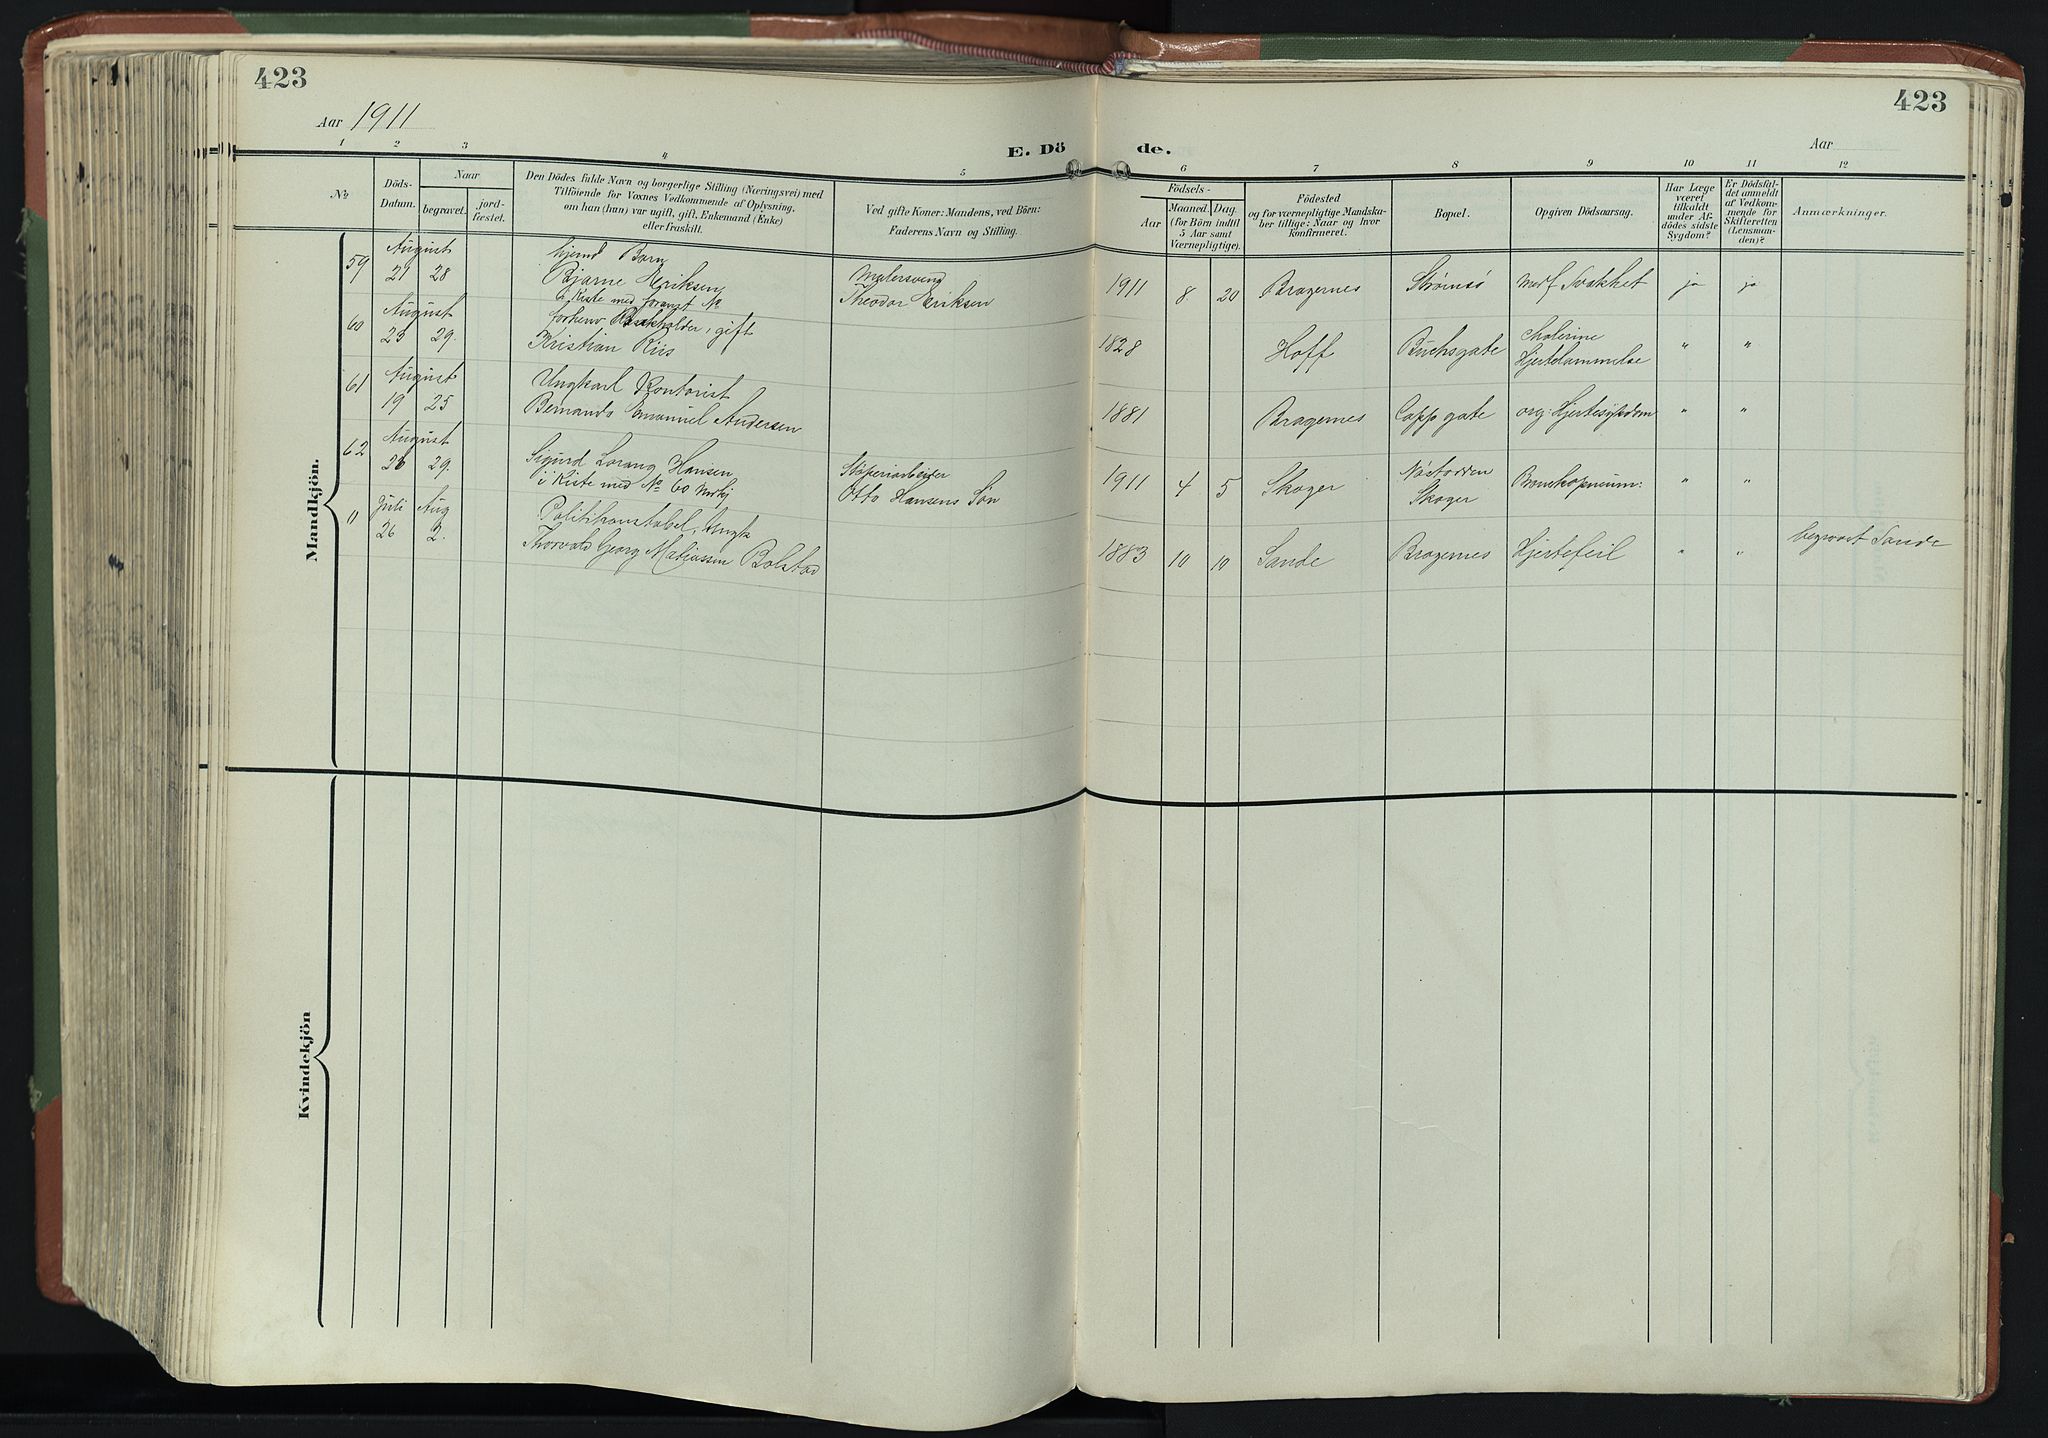 423
423
Aar 1911
Aar
E. Dö
de.
1 2 3 4 5 6 7 8 9 10 11 12
No
Döds-
Datum.
Naar
begravet.
jord-
fæstet.
Den Dödes fulde Navn og borgerlige Stilling (Næringsvei) med
Tilföiende for Voxnes Vedkommende af Oplysning,
om han (hun) var ugift, gift, Enkemand (Enke)
eller fraskilt.
Ved gifte Koner: Mandens, ved Börn:
Faderens Navn og Stilling.
Födsels-
Aar
Maaned.
Dag.
(for Börn indtil
5 Aar samt
Værnepligtige).
Födested
og for værnepligtige Mandska-
ber tillige: Naar og hvor
konfirmeret.
Bopæl.
Opgiven Dödsaarsag.
Har Læge
været
tilkaldt
under Af-
dödes sidste
Sygdom?
Er Dödsfal-
det anmeldt
af Vedkom-
mende for
Skifteretten
(Lensman-
den)?
Anmærkninger.
Mandkjön.
August hjemd Barn
59 21 28 Bjarne Eriksen Malersvend 1911 8 20 Bragernes Strømsø medf Svakhet ja ja
i Kiste med forangt No Theodor Eriksen
August forhenv gift Cholerine
60 25 29. Kristian Riis 1828 Hoff Buchsgate Hjertelammelse " "
August Ungkarl Kontorist
61 19 25 Bernando Emanuel Andersen 1881 Bragernes Capp gate org: Hjertesygdom " "
August Sigurd Lorang Hansen Støperiarbeider Nøstodden
62 26 29. i Kiste med No 60 Otto Hansens Søn 1911 4 5 Skoger Skoger Bronchopneum: " "
Juli Aug Politikonstabel, Ungk
11 26 2. Thorvald Georg Matiassen Bolstad 1883 10 10 Sande Bragernes Hjertefeil " " begravet Sande
Kvindekjön